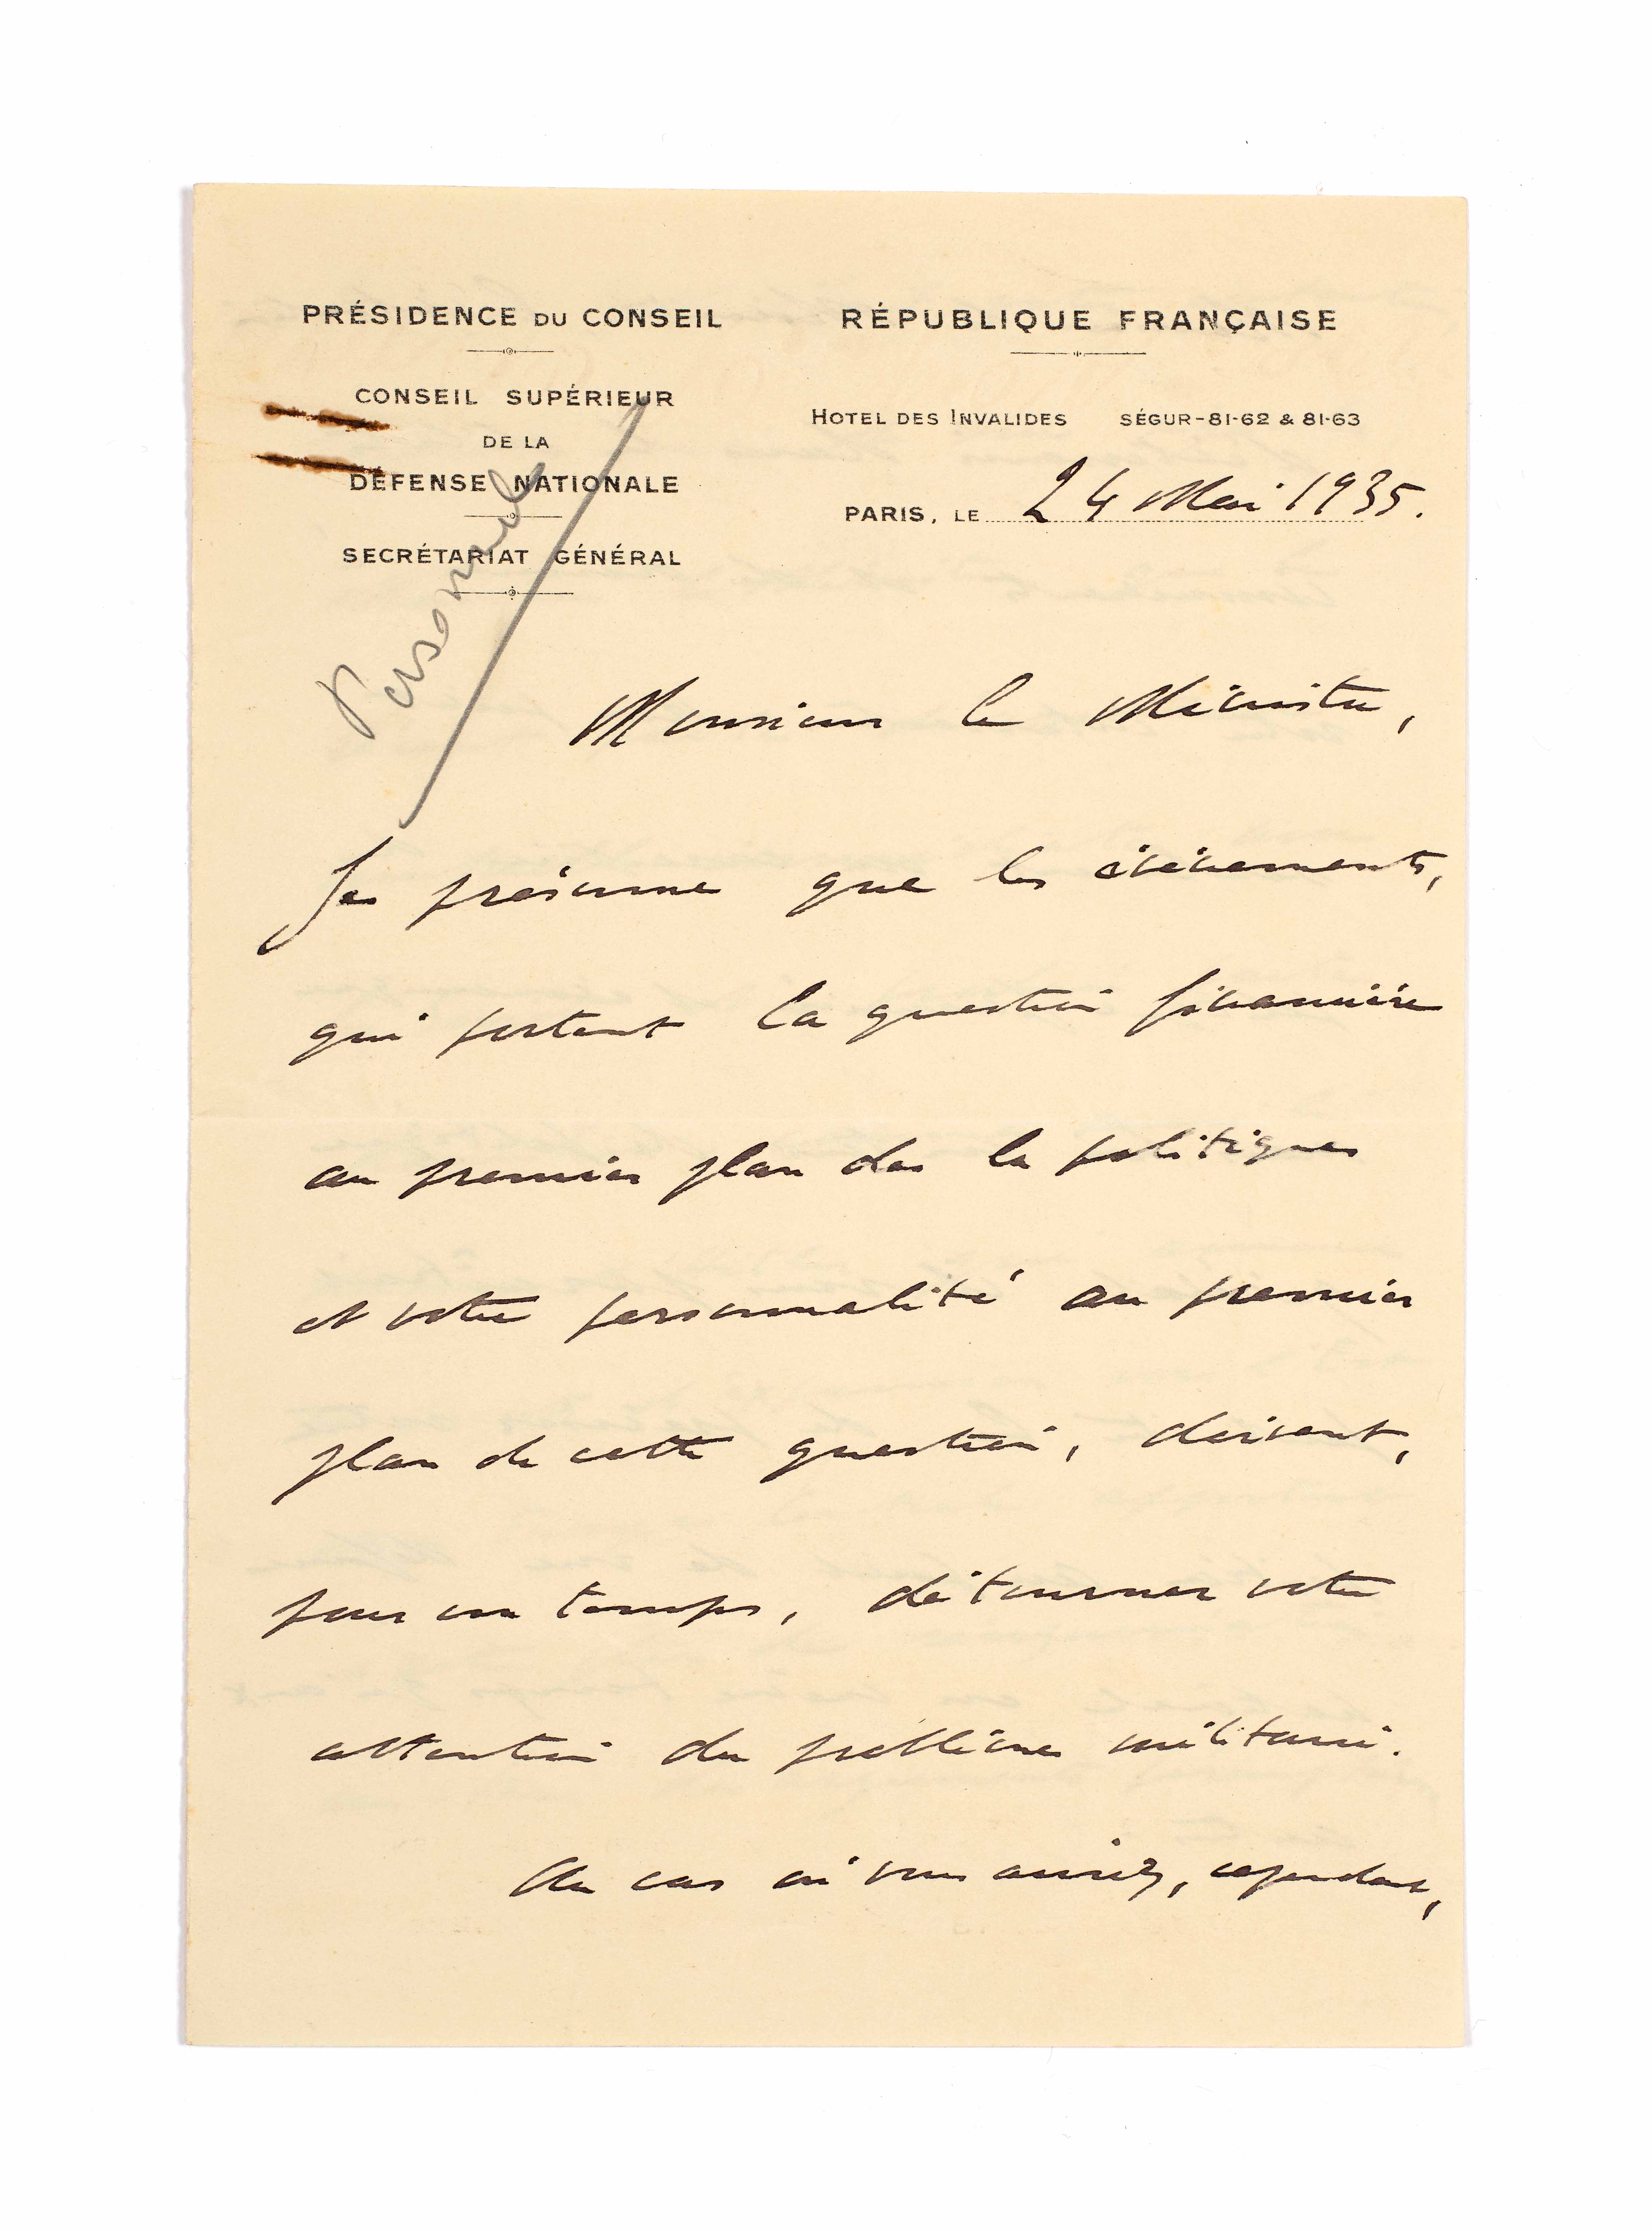 PRÉSIDENCE DU CONSEIL
CONSEIL SUPÉRIEUR
DE LA
DÉFENSE NATIONALE
SECRÉTARIAT GÉNÉRAL
Personnel
RÉPUBLIQUE FRANÇAISE
HOTEL DES INVALIDES SÉGUR-81-62 & 81-63
PARIS, LE 24 Mai 1935.
Monsieur le Ministre,
Je présume que les événements,
qui portent la question financière
au premier plan de la politique
et votre personnalité au premier
plan de cette question, doivent,
pour un temps, détourner votre
attention du problème militaire.
Au cas où vous auriez, cependant,